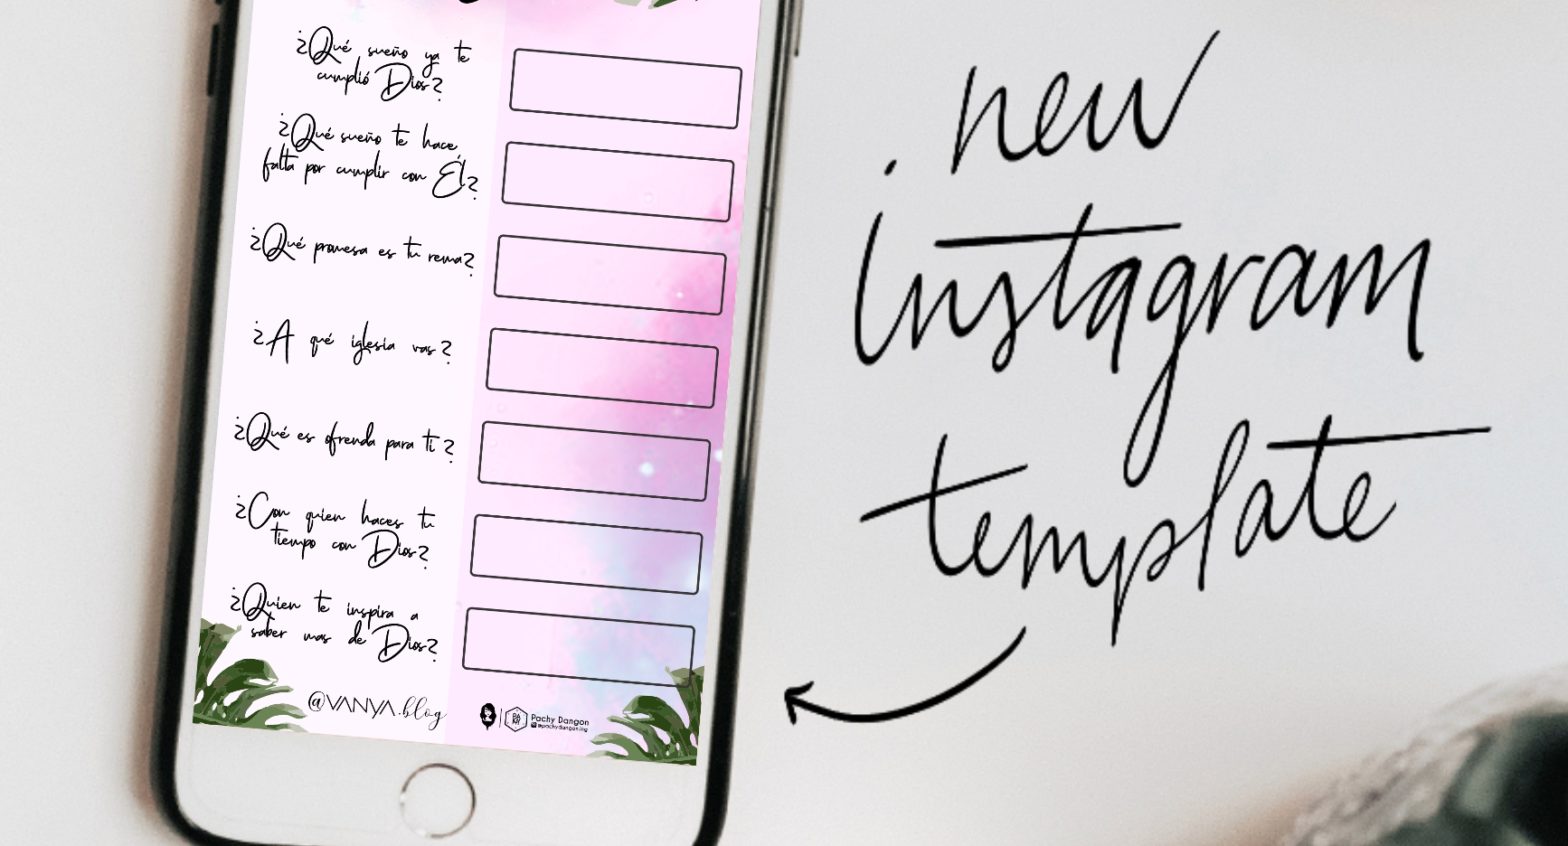 ¿Qué sueño ya te
cumplió Dios?
¿Qué sueño te hace
falta por cumplir con Él?
¿Qué promesa es tu rema?
¿A qué iglesia vas?
¿Qué es ofrenda para ti?
¿Con quien haces tu
tiempo con Dios?
¿Quien te inspira a
saber mas de Dios?
@VANYA.blog
Pachy Dangon
new
instagram
template